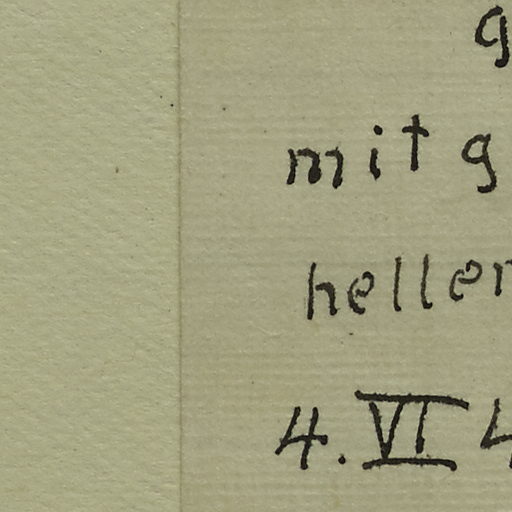 g
mit g
heller
4. VI 4